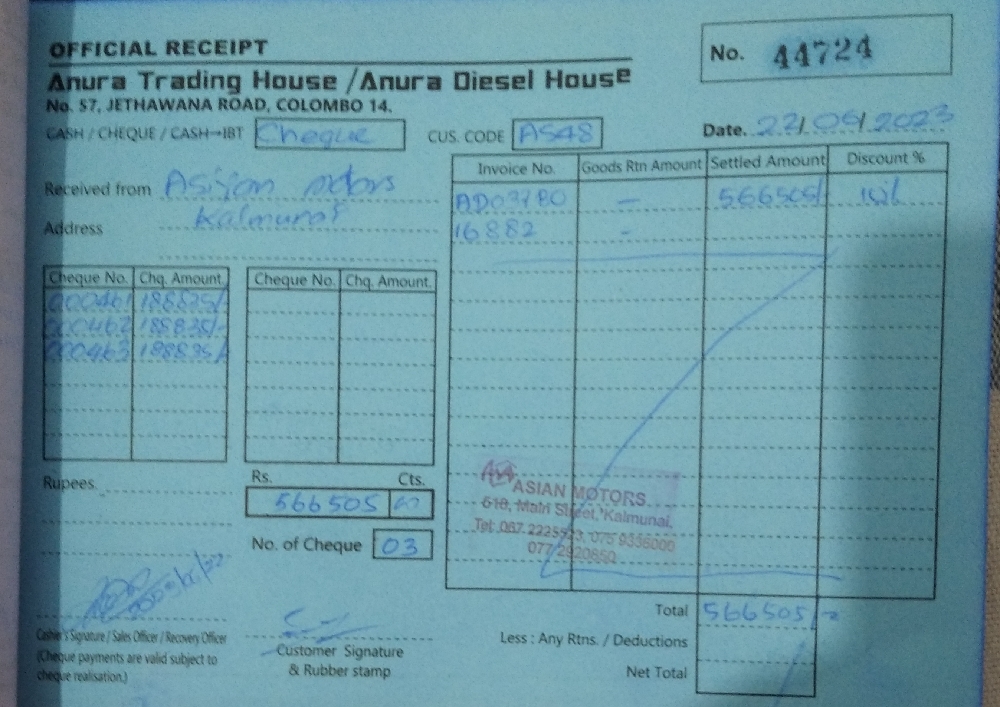 OFFICIAL RECEIPT
No. 44724
Anura Trading House / Anura Diesel House
No. 57, JETHAWANA ROAD, COLOMBO 14.
CASH / CHEQUE / CASH→IBT Cheque CUS. CODE AS48 Date. 22/05/2023
Received from Asiyan motors
Address Kalmunai
Invoice No. Goods Rtn Amount Settled Amount Discount %
AD03780 — 566505/-
16882 -
Cheque No. Chq. Amount. Cheque No. Chq. Amount.
000461
000462 188835/-
000463 188835/-
Rupees
Rs. Cts.
566505
No. of Cheque 03
ASIAN MOTORS
Main Street, Kalmunai.
Total 566505/-
Less : Any Rtns. / Deductions
Net Total
Cashier's Signature / Sales Officer / Recovery Officer
(Cheque payments are valid subject to
cheque realisation.)
Customer Signature
& Rubber stamp